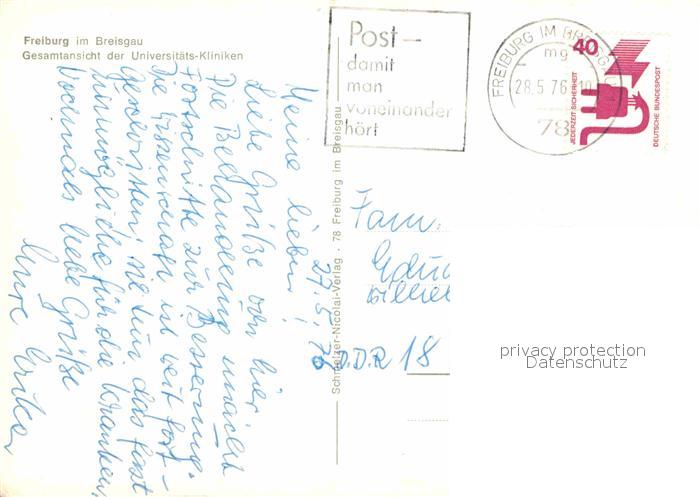 Freiburg im Breisgau
Gesamtansicht der Universitäts-Kliniken
Post –
damit
man
voneinander
hört
FREIBURG IM BREISGAU
mg
28.5.76
78
40
JEDERZEIT SICHERHEIT
DEUTSCHE BUNDESPOST
27.5.76
Meine lieben!
Liebe Grüße von hier
Die Behandlung macht
Fortschritte zur Besserung.
Die Wissenschaft ist weit fort-
geschritten; sie tun das fast
Unmögliche für die Kranken.
Nochmals liebe Grüße
Eure Erika
Schmelzer-Nicolai-Verlag · 78 Freiburg im Breisgau
Fam.
D.D.R 18
privacy protection
Datenschutz